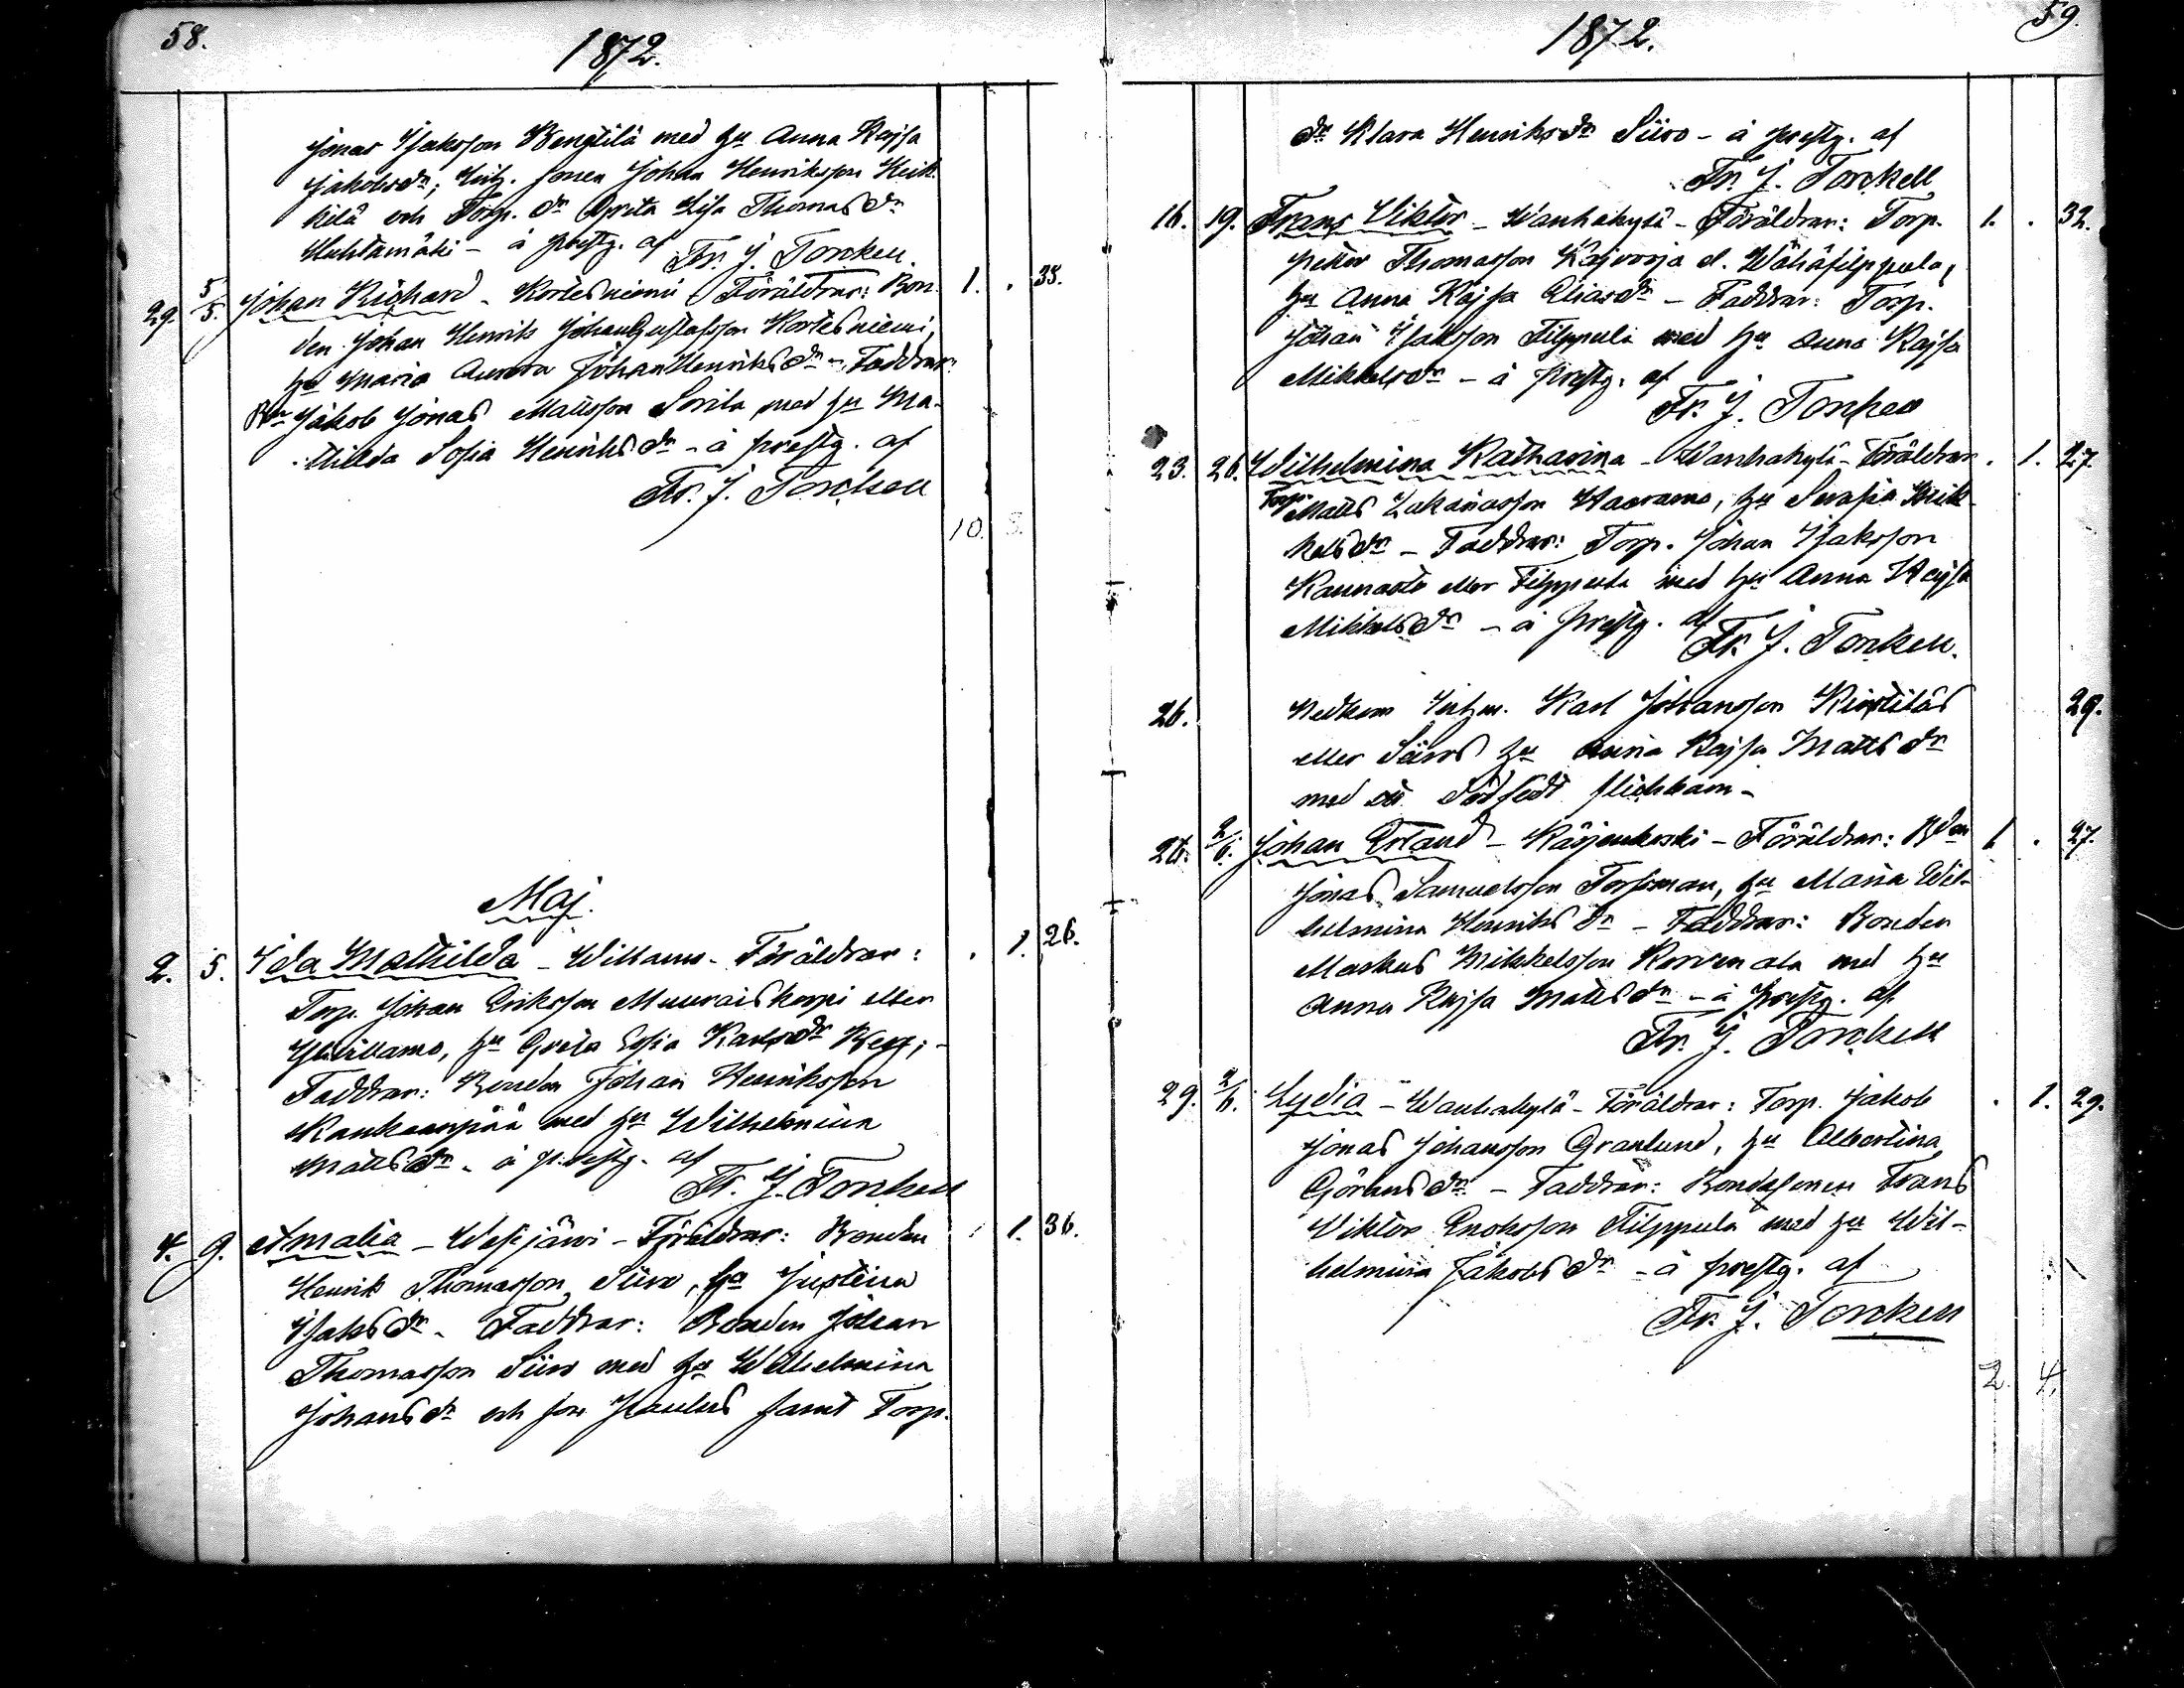 58.
1872.
Jonas Isaksson Bengtilä med hu Anna Kajsa
Jakobsdr; Inh. sonen Johan Henriksson Heik
kilä och Torp. dr Greta Lisa Thomasdr
Huhtamäki - å prestg. af
Fr. J. Torckell.
29. 5/5. Johan Richard - Kortesniemi - Föräldrar: Bon 1. . 35.
den Johan Henrik Johan Gustafsson Kortesniemi,
hu Maria Aurora Johan Henriksdr - Faddrar:
Bn Jakob Jonas Mattsson Sorila med hu Ma-
thilda Sofia Henriksdr - å prestg. af
Fr. J. Torckell
10. 8.
Maj.
2. 5. Ida Mathilda - Willamo - Föräldrar: . 1. 26.
Torp. Johan Eriksson Muuraiskorpi eller
Yliwillamo, hu Greta Sofia Karlsdr Kepp; -
Faddrar: Bonden Johan Henriksson
Kankaanpää med hu Wilhelmina
Mattsdr - å prestg. af
Fr. J. Torckell
4. 9. Amalia - Wesijärwi - Föräldrar: Bonden . 1. 36.
Henrik Thomasson Siiro, hu Justina
Isaksdr - Faddrar: Bonden Johan
Thomasson Siiro med hu Wilhelmina
Johansdr och son Paulus samt Torp.
59.
1872.
dr Klara Henriksdr Siiro - å prestg. af
Fr. J. Torckell
16. 19. Frans Viktor - Wanhakylä - Föräldrar: Torp. 1. . 32.
Petter Thomasson Kajvorja el. Wähäfilppula,
hu Anna Kajsa Eliasdr - Faddrar: Torp.
Johan Isaksson Filppula med hu Anna Kajsa
Mikkelsdr - å prestg. af
Fr. J. Torckell
23. 26. Wilhelmina Katharina - Wanhakylä - Föräldrar . 1. 27.
Torp. Matts Zakariasson Haarama, hu Serafia Mik
kelsdr - Faddrar: Torp. Johan Isaksson
Kaunasto eller Filppula med hu Anna Kajsa
Mikkelsdr - å prestg. af
Fr. J. Torckell.
26. Nedkom Inhm. Karl Johansson Kinttiläs 29.
eller Siiros hu Anna Kajsa Mattsdr
med ett dödfödt flickbarn -
26. 2/6. Johan Erland - Kärjenkoski - Föräldrar: Bden 1 . 27.
Jonas Samuelsson Forsman, hu Maria Wil-
helmina Henriksdr - Faddrar: Bonden
Markus Mikkelsson Korvenala med hu
Anna Kajsa Mattsdr - å prestg. af
Fr. J. Torckell
29. 2/6. Lydia - Wanhakylä - Föräldrar: Torp. Jakob . 1. 29.
Jonas Johansson Granlund, hu Albertina
Göransdr - Faddrar: Bondesonen Frans
Viktor Enoksson Filppula med hu Wil-
helmina Jakobsdr - å prestg. af
Fr. J. Torckell
2. 4.